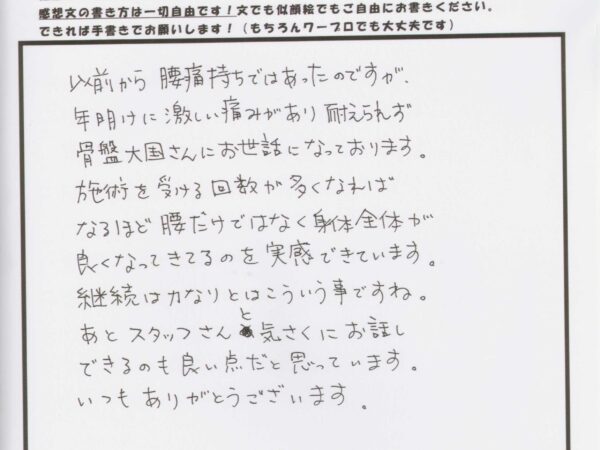 感想文の書き方は一切自由です！文でも似顔絵でもご自由にお書きください。
できれば手書きでお願いします！（もちろんワープロでも大丈夫です）
以前から腰痛持ちではあったのですが、
年明けに激しい痛みがあり耐えられず
骨盤大国さんにお世話になっております。
施術を受ける回数が多くなれば
なるほど腰だけではなく身体全体が
良くなってきてるのを実感できています。
継続は力なりとはこういう事ですね。
あとスタッフさんと気さくにお話し
できるのも良い点だと思っています。
いつもありがとうございます。